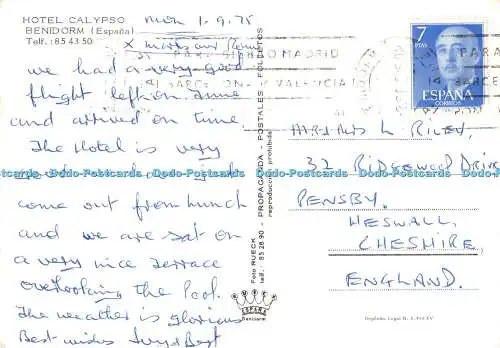 HOTEL CALYPSO
BENIDORM (España)
Telf.: 85 43 50
Mon 1.9.75
X marks our Room
we had a very good
flight left on time
and arrived on time
The Hotel is very
come out from lunch
and we are sat on
a very nice terrace
overlooking the Pool.
The weather is glorious
Best wishes
Foto RUECK
telf.: 85 28 90 - PROPAGANDA - POSTALES - FOLLETOS
reproducción prohibida
ESPAÑA
Benidorm
7
PTAS
ESPAÑA
CORREOS
MADRID
VALENCIA
PARA
BARCEL
MR & MRS L. RILEY,
32 RIDGEWOOD DRIVE
PENSBY.
HESWALL,
CHESHIRE
ENGLAND.
Dodo-Postcards Dodo-Postcards Dodo-Postcards Dodo-Postcards